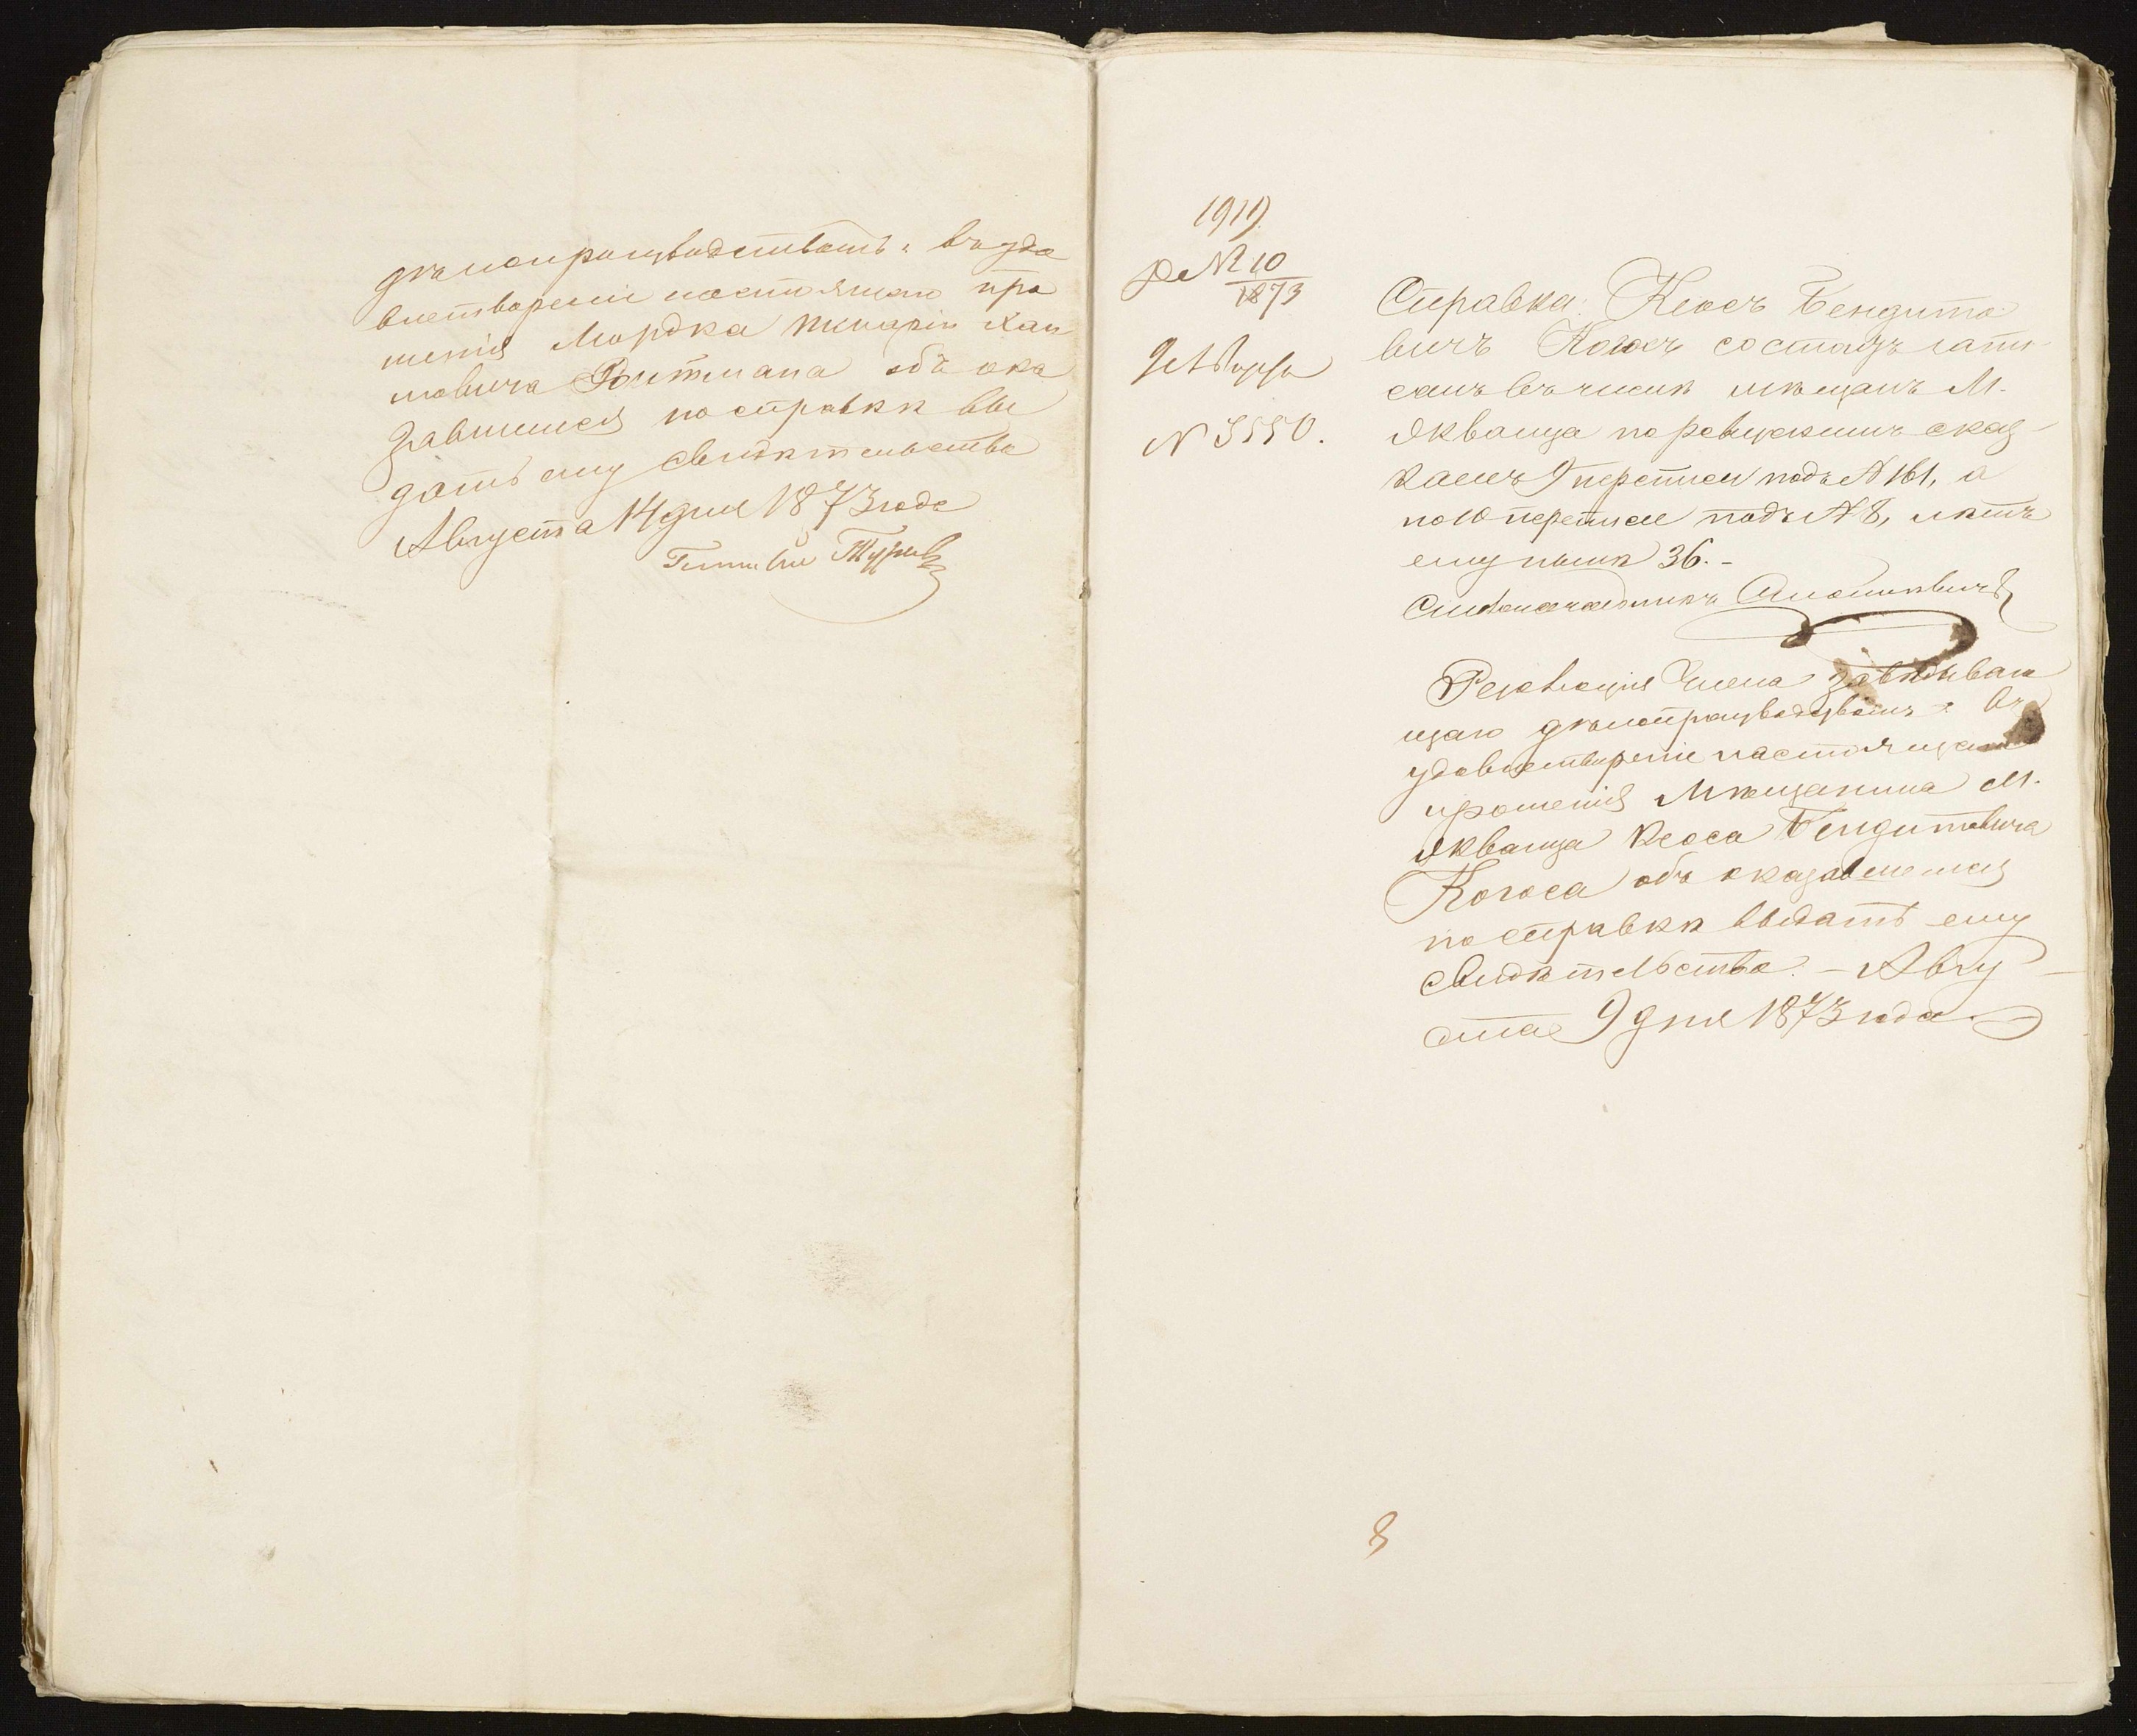 дѣлопроизводствомъ: въ удо
влетвореніе настоящаго про
шенія Мордка Хаи
мовича Ройтмана объ ока
завшемся по справкѣ вы
дать ему свидѣтельство
Августа 14 дня 1873 года
1911
Де № 10
1873
9 Августа
N 3550.
Справка: Клосъ Бендито
вичъ Когосъ состоитъ запи
санъ въ числѣ мѣщанъ М.
Яквоица по ревизскимъ сказ-
камъ 9 переписи подъ N 161, а
по 10 переписи подъ N 8, лѣтъ
ему нынѣ 36.-
Столоначальникъ
Резолюція Члена завѣдываю
щаго дѣлопроизводствомъ: Въ
удовлетвореніе настоящаго
прошенія Мѣщанина М.
Яквоица Клоса Бендитовича
Когоса объ оказавшемся
по справкѣ выдать ему
свидѣтельство. - Авгу-
ста 9 дня 1873 года
8